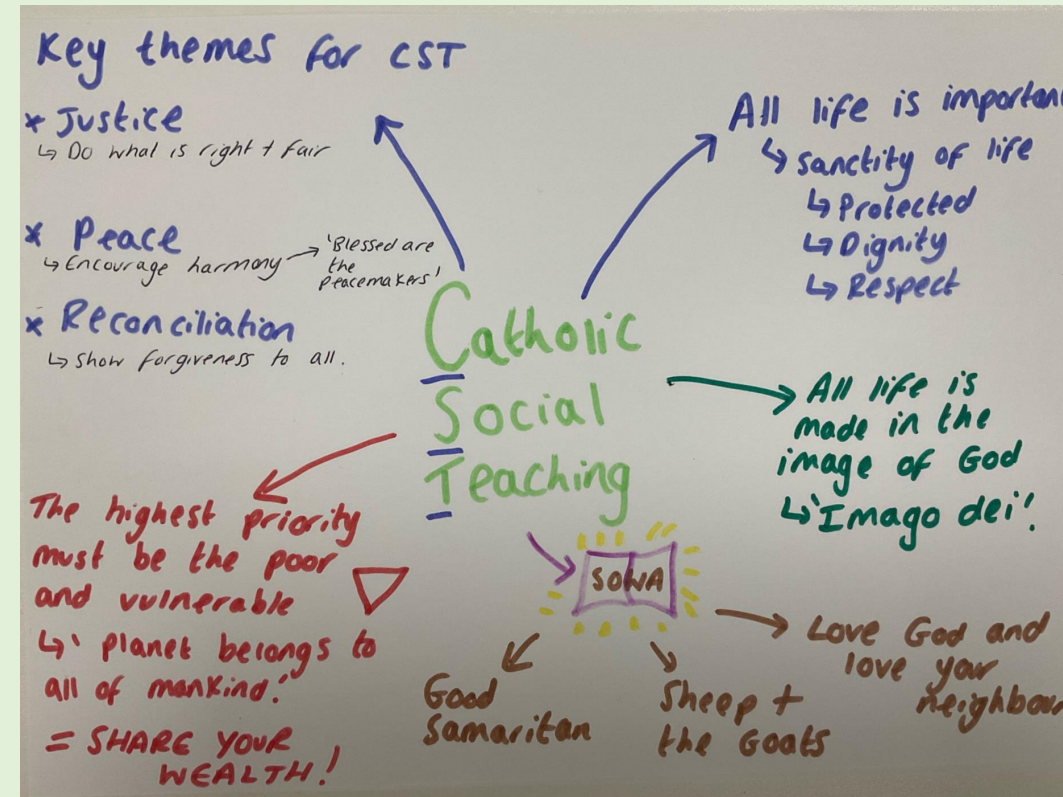 Key themes for CST
* Justice
↳ Do what is right + fair
* Peace
↳ Encourage harmony → 'Blessed are
the
peacemakers'
* Reconciliation
↳ show forgiveness to all.
All life is important
↳ Sanctity of life
↳ Protected
↳ Dignity
↳ Respect
Catholic
Social
Teaching
All life is
made in the
image of God
↳ 'Imago dei'.
The highest priority
must be the poor
and vulnerable
↳ 'planet belongs to
all of mankind.'
= SHARE YOUR
WEALTH!
SOWA
Good
Samaritan
Sheep +
the Goats
Love God and
love your
neighbour